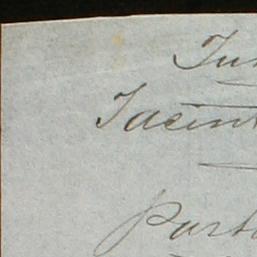 Ju
Jacint
Part